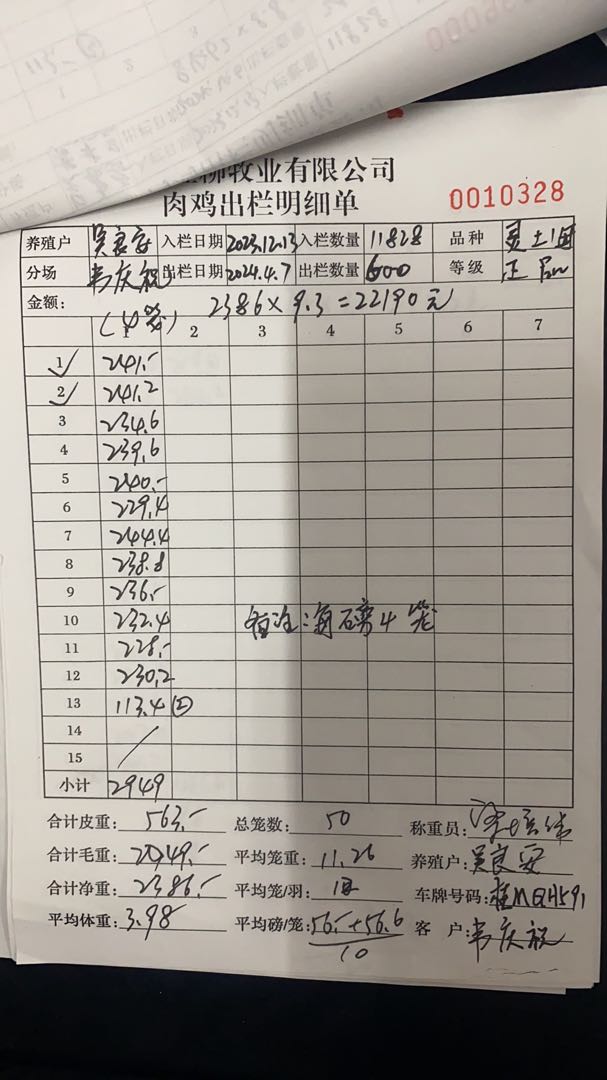 柳牧业有限公司
肉鸡出栏明细单 0010328
养殖户 吴良安 入栏日期 2023.12.13 入栏数量 11828 品种 土
分场 韦庆 出栏日期 2024.4.7 出栏数量 600 等级 正品
金额: 2386×9.3=22190元
(4笼)
1 2 3 4 5 6 7
1 241.-
2 241.2
3 234.6
4 239.6
5 240.-
6 229.4
7 244.4
8 238.8
9 236.-
10 232.4 备注:每磅4笼
11 228.-
12 230.2
13 113.4 ②
14
15
小计 2949
合计皮重: 563.- 总笼数: 50 称重员:
合计毛重: 2949.- 平均笼重: 11.26 养殖户: 吴良安
合计净重: 2386.- 平均笼/羽: 12 车牌号码: 桂MQH591
平均体重: 3.98 平均磅/笼: 56.-+56.6 客 户: 韦庆
10